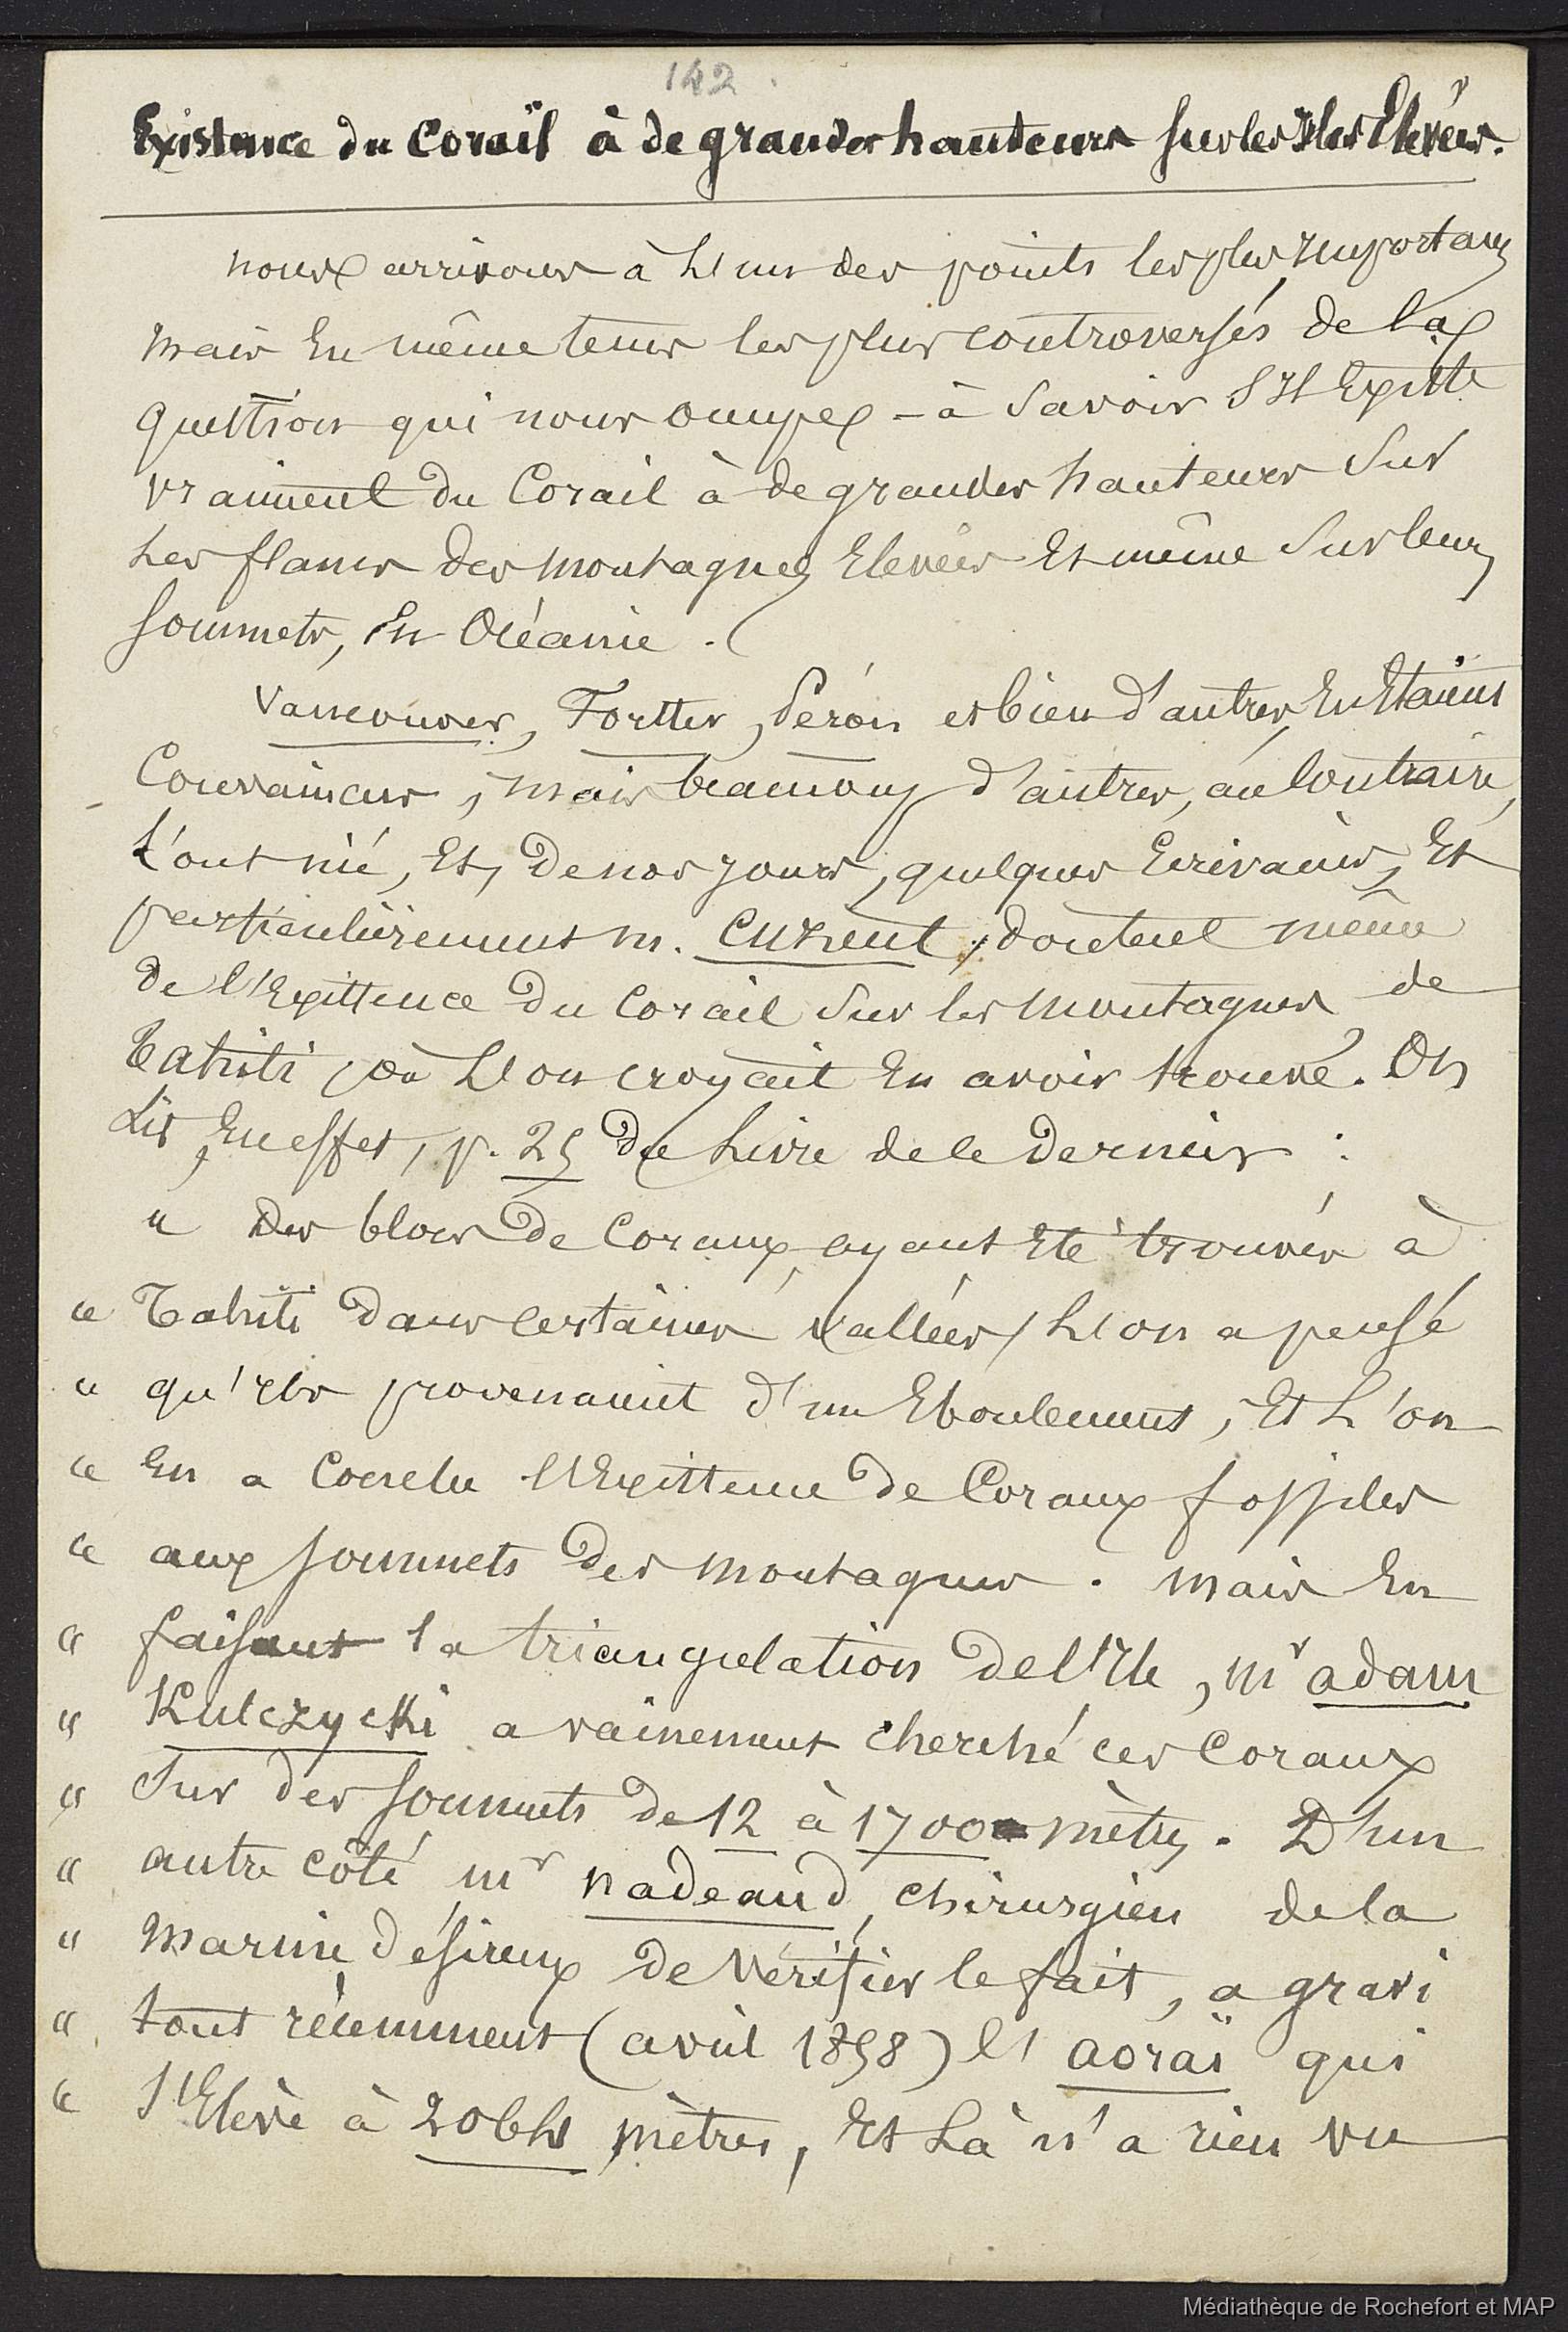 142.
Existence du Corail à de grandes hauteurs sur les Iles Élevées.
nous arrivons à L'un des points les plus Importans
mais En même tems les plus controversés de la
question qui nous occupe - à savoir S'Il Existe
vraiment du Corail à de grandes hauteurs sur
Les flancs des montagnes Elevées Et même sur leurs
sommets, En Océanie.
Vancouver, Forster, Péron et bien d'autres, En Etaient
Convaincus, mais beaucoup d'autres, au Contraire,
L'ont nié, Et, De nos jours, quelques Ecrivains, Et
particulièrement M. Cuzent, doutent même
de l'Existence du Corail sur les montagnes de
Tahiti, où L'on croyait En avoir trouvé. On
Lit, En effet, p. 25 du Livre de ce dernier :
" Des blocs de Coraux ayant Eté trouvés à
" Tahiti dans certaines vallées, L'on a pensé
" qu'ils provenaient d'un Eboulement, Et L'on
" En a Conclu l'Existence de Coraux fossiles
" aux sommets des montagnes. mais En
" faisant la triangulation de l'Ile, Mr adam
" Kulczycki a vainement cherché ces Coraux
" sur des sommets de 12 à 1700 mètres. D'un
" autre côté Mr nadeaud, chirurgien de la
" marine, désireux de vérifier le fait, a gravi
" tout récemment (avril 1858) l'aoraï qui
" s'Elève à 2064 mètres, Et Là n'a rien vu
Médiathèque de Rochefort et MAP